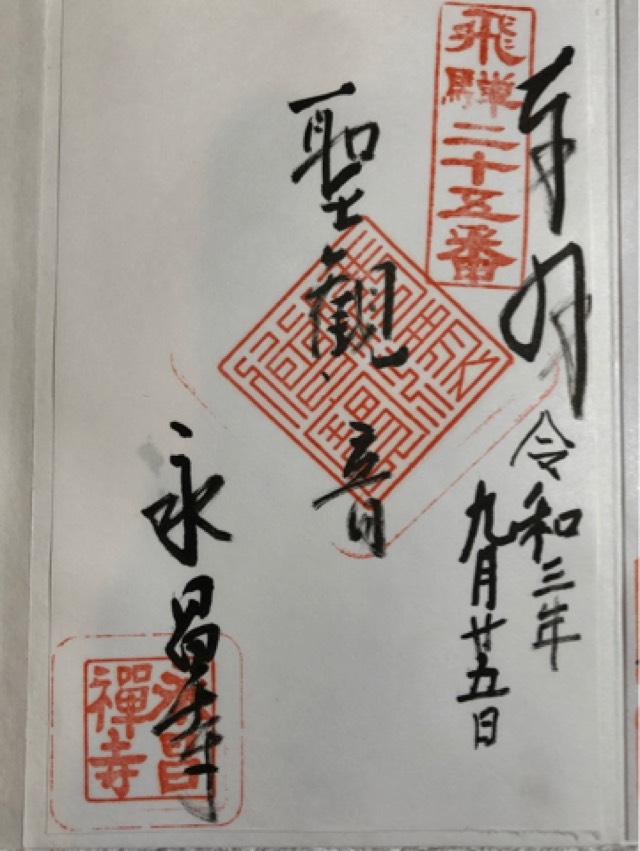 奉拝
令和三年
九月廿五日
飛騨二十五番
聖観音
永昌寺
永昌禅寺